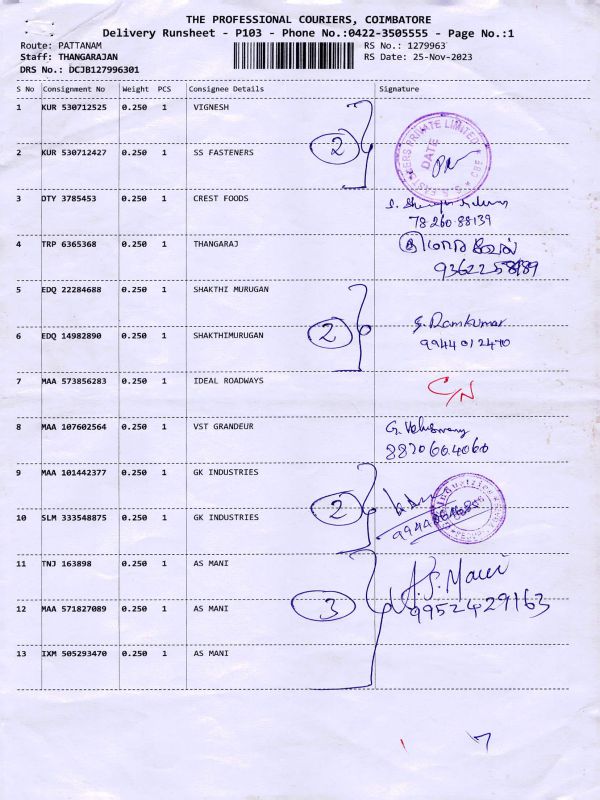 THE PROFESSIONAL COURIERS, COIMBATORE
Delivery Runsheet - P103 - Phone No.:0422-3505555 - Page No.:1
Route: PATTANAM
RS No.: 1279963
Staff: THANGARAJAN
RS Date: 25-Nov-2023
DRS No.: DCJB127996301
S No Consignment No Weight PCS Consignee Details Signature
1 KUR 530712525 0.250 1 VIGNESH
2
2 KUR 530712427 0.250 1 SS FASTENERS
DATE
3 DTY 3785453 0.250 1 CREST FOODS
78260 88139
4 TRP 6365368 0.250 1 THANGARAJ
5 EDQ 22284688 0.250 1 SHAKTHI MURUGAN
2 S. Ramkumar
6 EDQ 14982890 0.250 1 SHAKTHIMURUGAN
9944012470
7 MAA 573856283 0.250 1 IDEAL ROADWAYS C/N
8 MAA 107602564 0.250 1 VST GRANDEUR
9 MAA 101442377 0.250 1 GK INDUSTRIES
2
10 SLM 333548875 0.250 1 GK INDUSTRIES
11 TNJ 163898 0.250 1 AS MANI
A.S. Mani
12 MAA 571827089 0.250 1 AS MANI
3 9952429163
13 IXM 505293470 0.250 1 AS MANI